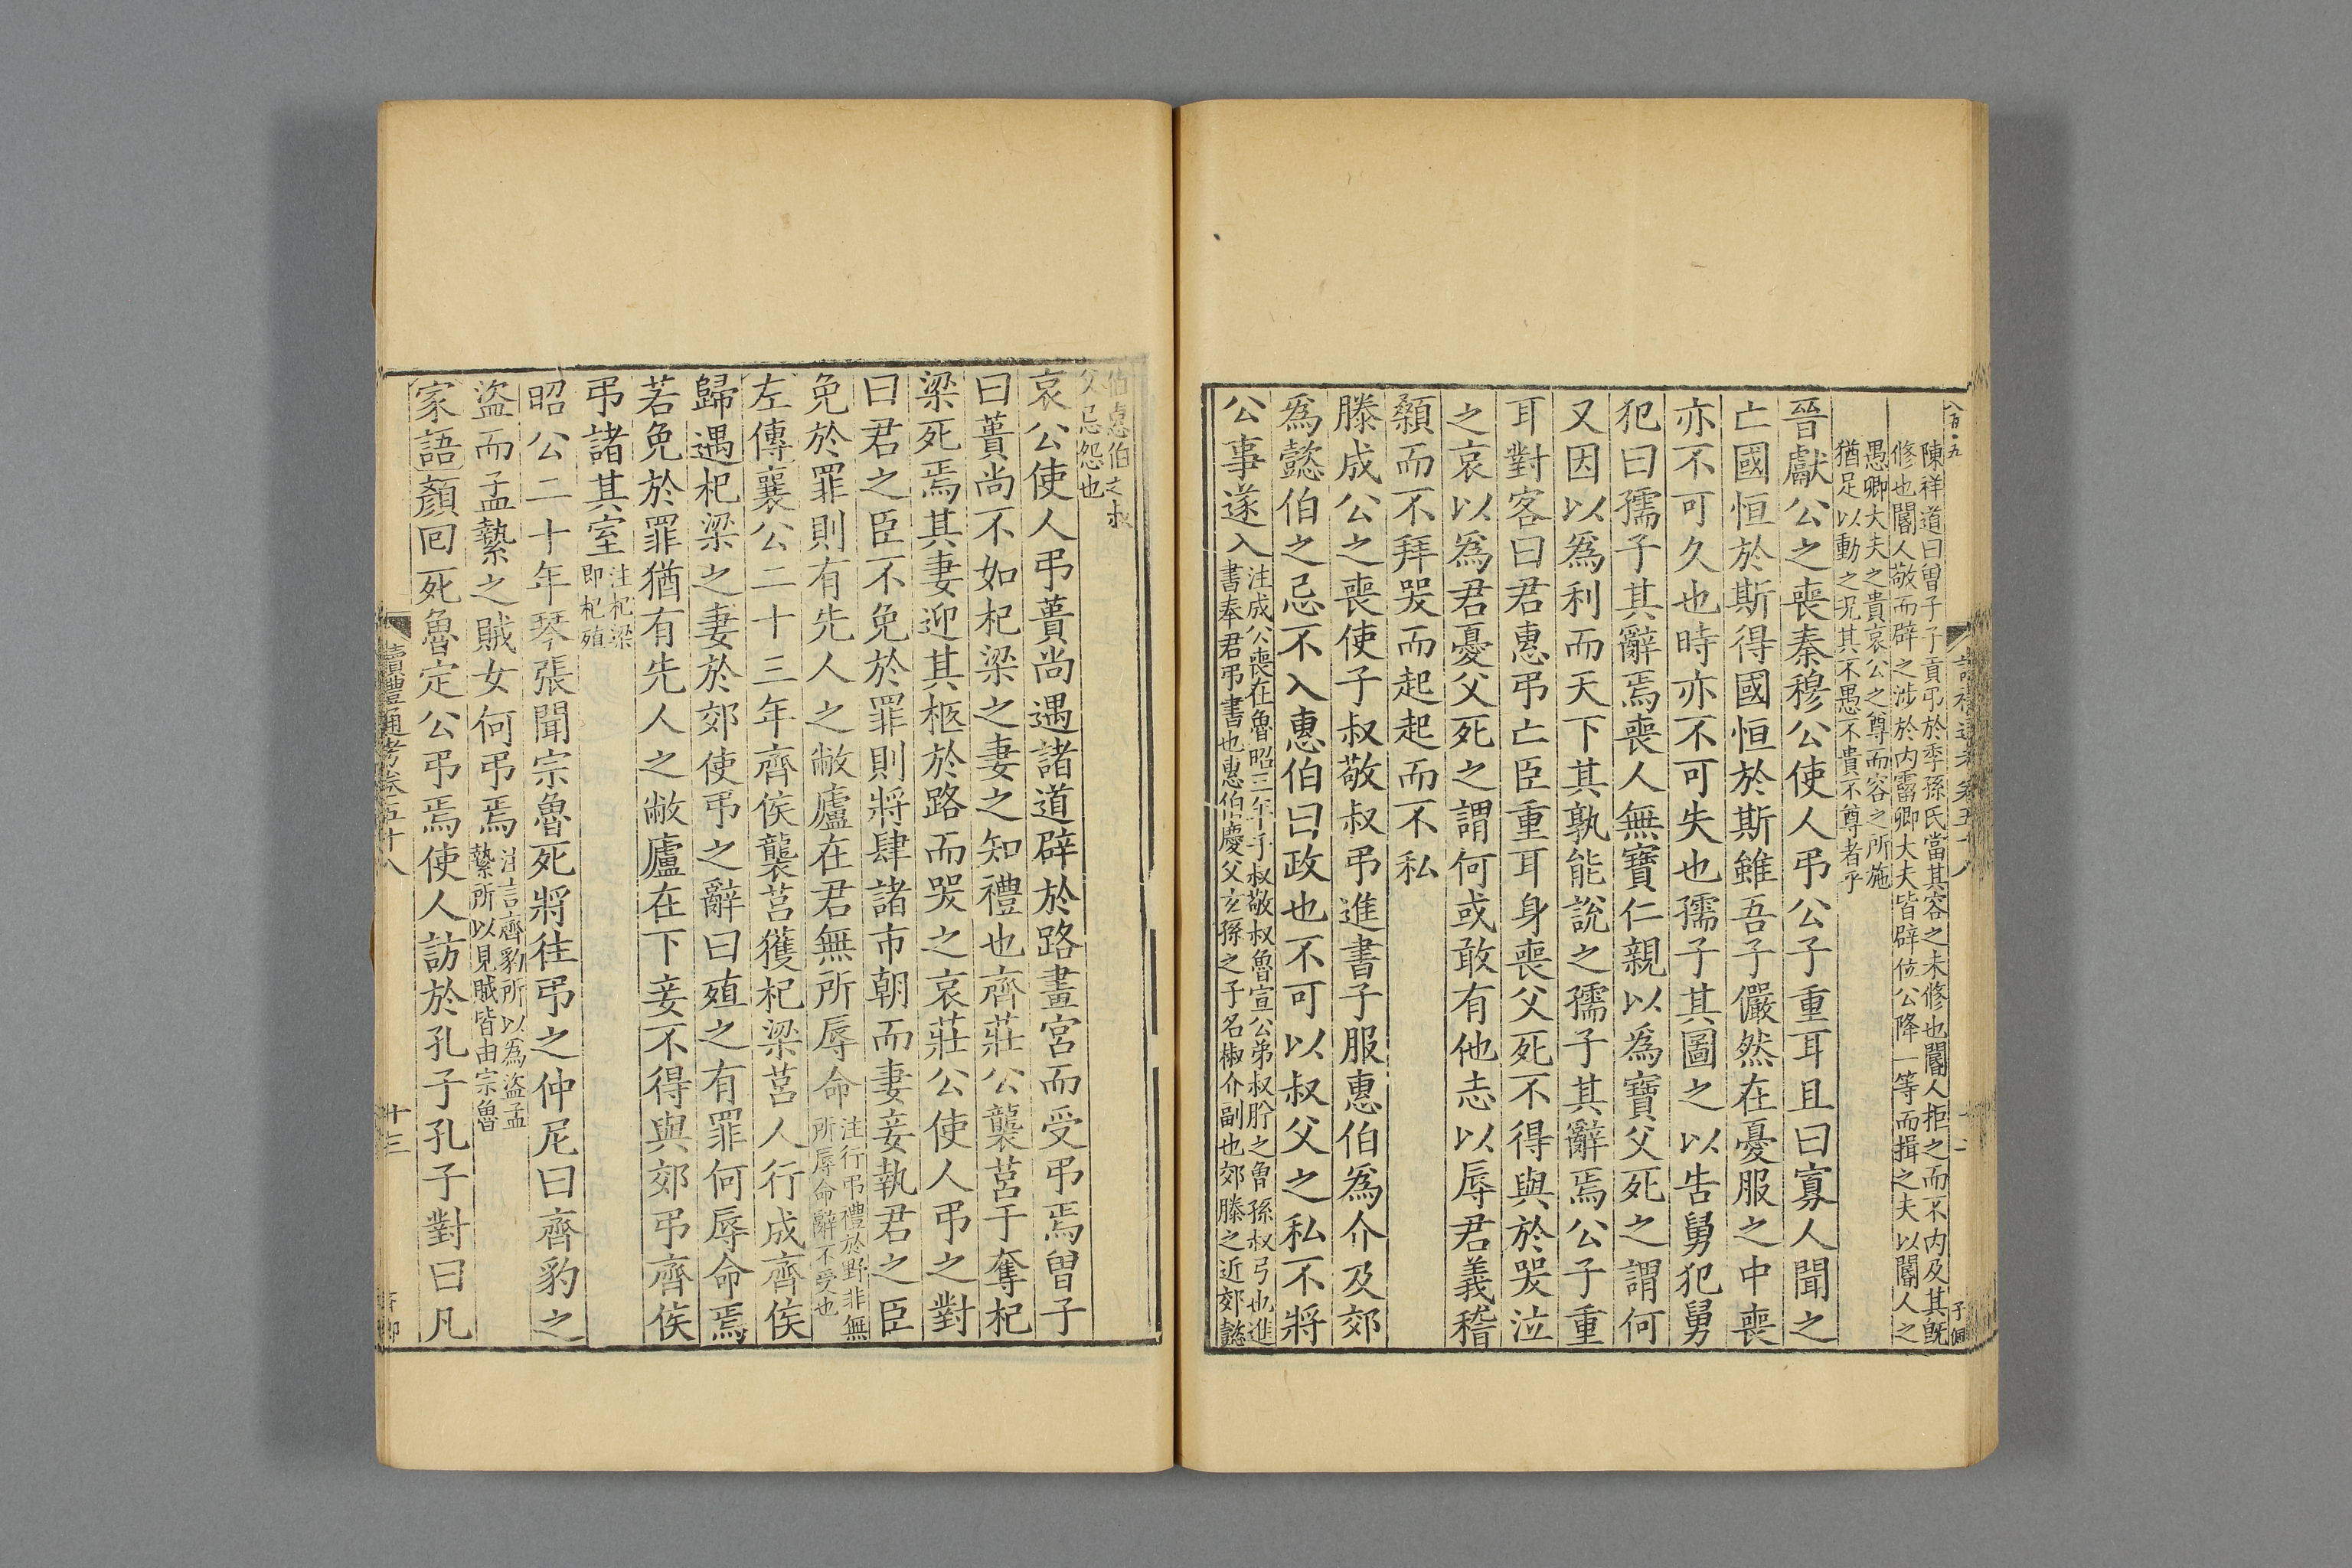 陳祥道曰曾子子貢弔於季孫氏當其容之未修也閽人拒之而不内及其既
修也閽人敬而辟之涉於内霤卿大夫皆辟位公降一等而揖之夫以閽人之
愚卿大夫之貴哀公之尊而容之所施
猶足以動之況其不愚不貴不尊者乎
晉獻公之喪秦穆公使人弔公子重耳且曰寡人聞之
亡國恒於斯得國恒於斯雖吾子儼然在憂服之中喪
亦不可久也時亦不可失也孺子其圖之以告舅犯舅
犯曰孺子其辭焉喪人無寶仁親以爲寶父死之謂何
又因以爲利而天下其孰能說之孺子其辭焉公子重
耳對客曰君惠弔亡臣重耳身喪父死不得與於哭泣
之哀以爲君憂父死之謂何或敢有他志以辱君義稽
顙而不拜哭而起起而不私
滕成公之喪使子叔敬叔弔進書子服惠伯爲介及郊
爲懿伯之忌不入惠伯曰政也不可以叔父之私不將
公事遂入
注成公喪在魯昭三年子叔敬叔魯宣公弟叔肸之魯孫叔弓也進
書奉君弔書也惠伯慶父玄孫之子名椒介副也郊滕之近郊懿
伯惠伯之叔
父忌怨也
哀公使人弔蕢尚遇諸道辟於路畫宮而受弔焉曾子
曰蕢尚不如杞梁之妻之知禮也齊莊公襲莒于奪杞
梁死焉其妻迎其柩於路而哭之哀莊公使人弔之對
曰君之臣不免於罪則將肆諸市朝而妻妾執君之臣
免於罪則有先人之敝廬在君無所辱命
注行弔禮於野非無
所辱命辭不受也
左傳襄公二十三年齊侯襲莒獲杞梁莒人行成齊侯
歸遇杞梁之妻於郊使弔之辭曰殖之有罪何辱命焉
若免於罪猶有先人之敝廬在下妾不得與郊弔齊侯
弔諸其室
注杞梁
即杞殖
昭公二十年琴張聞宗魯死將往弔之仲尼曰齊豹之
盜而孟縶之賊女何弔焉
注言齊豹所以為盜孟
縶所以見賊皆由宗魯
家語顏回死魯定公弔焉使人訪於孔子孔子對曰凡
讀禮通考卷五十八
十三